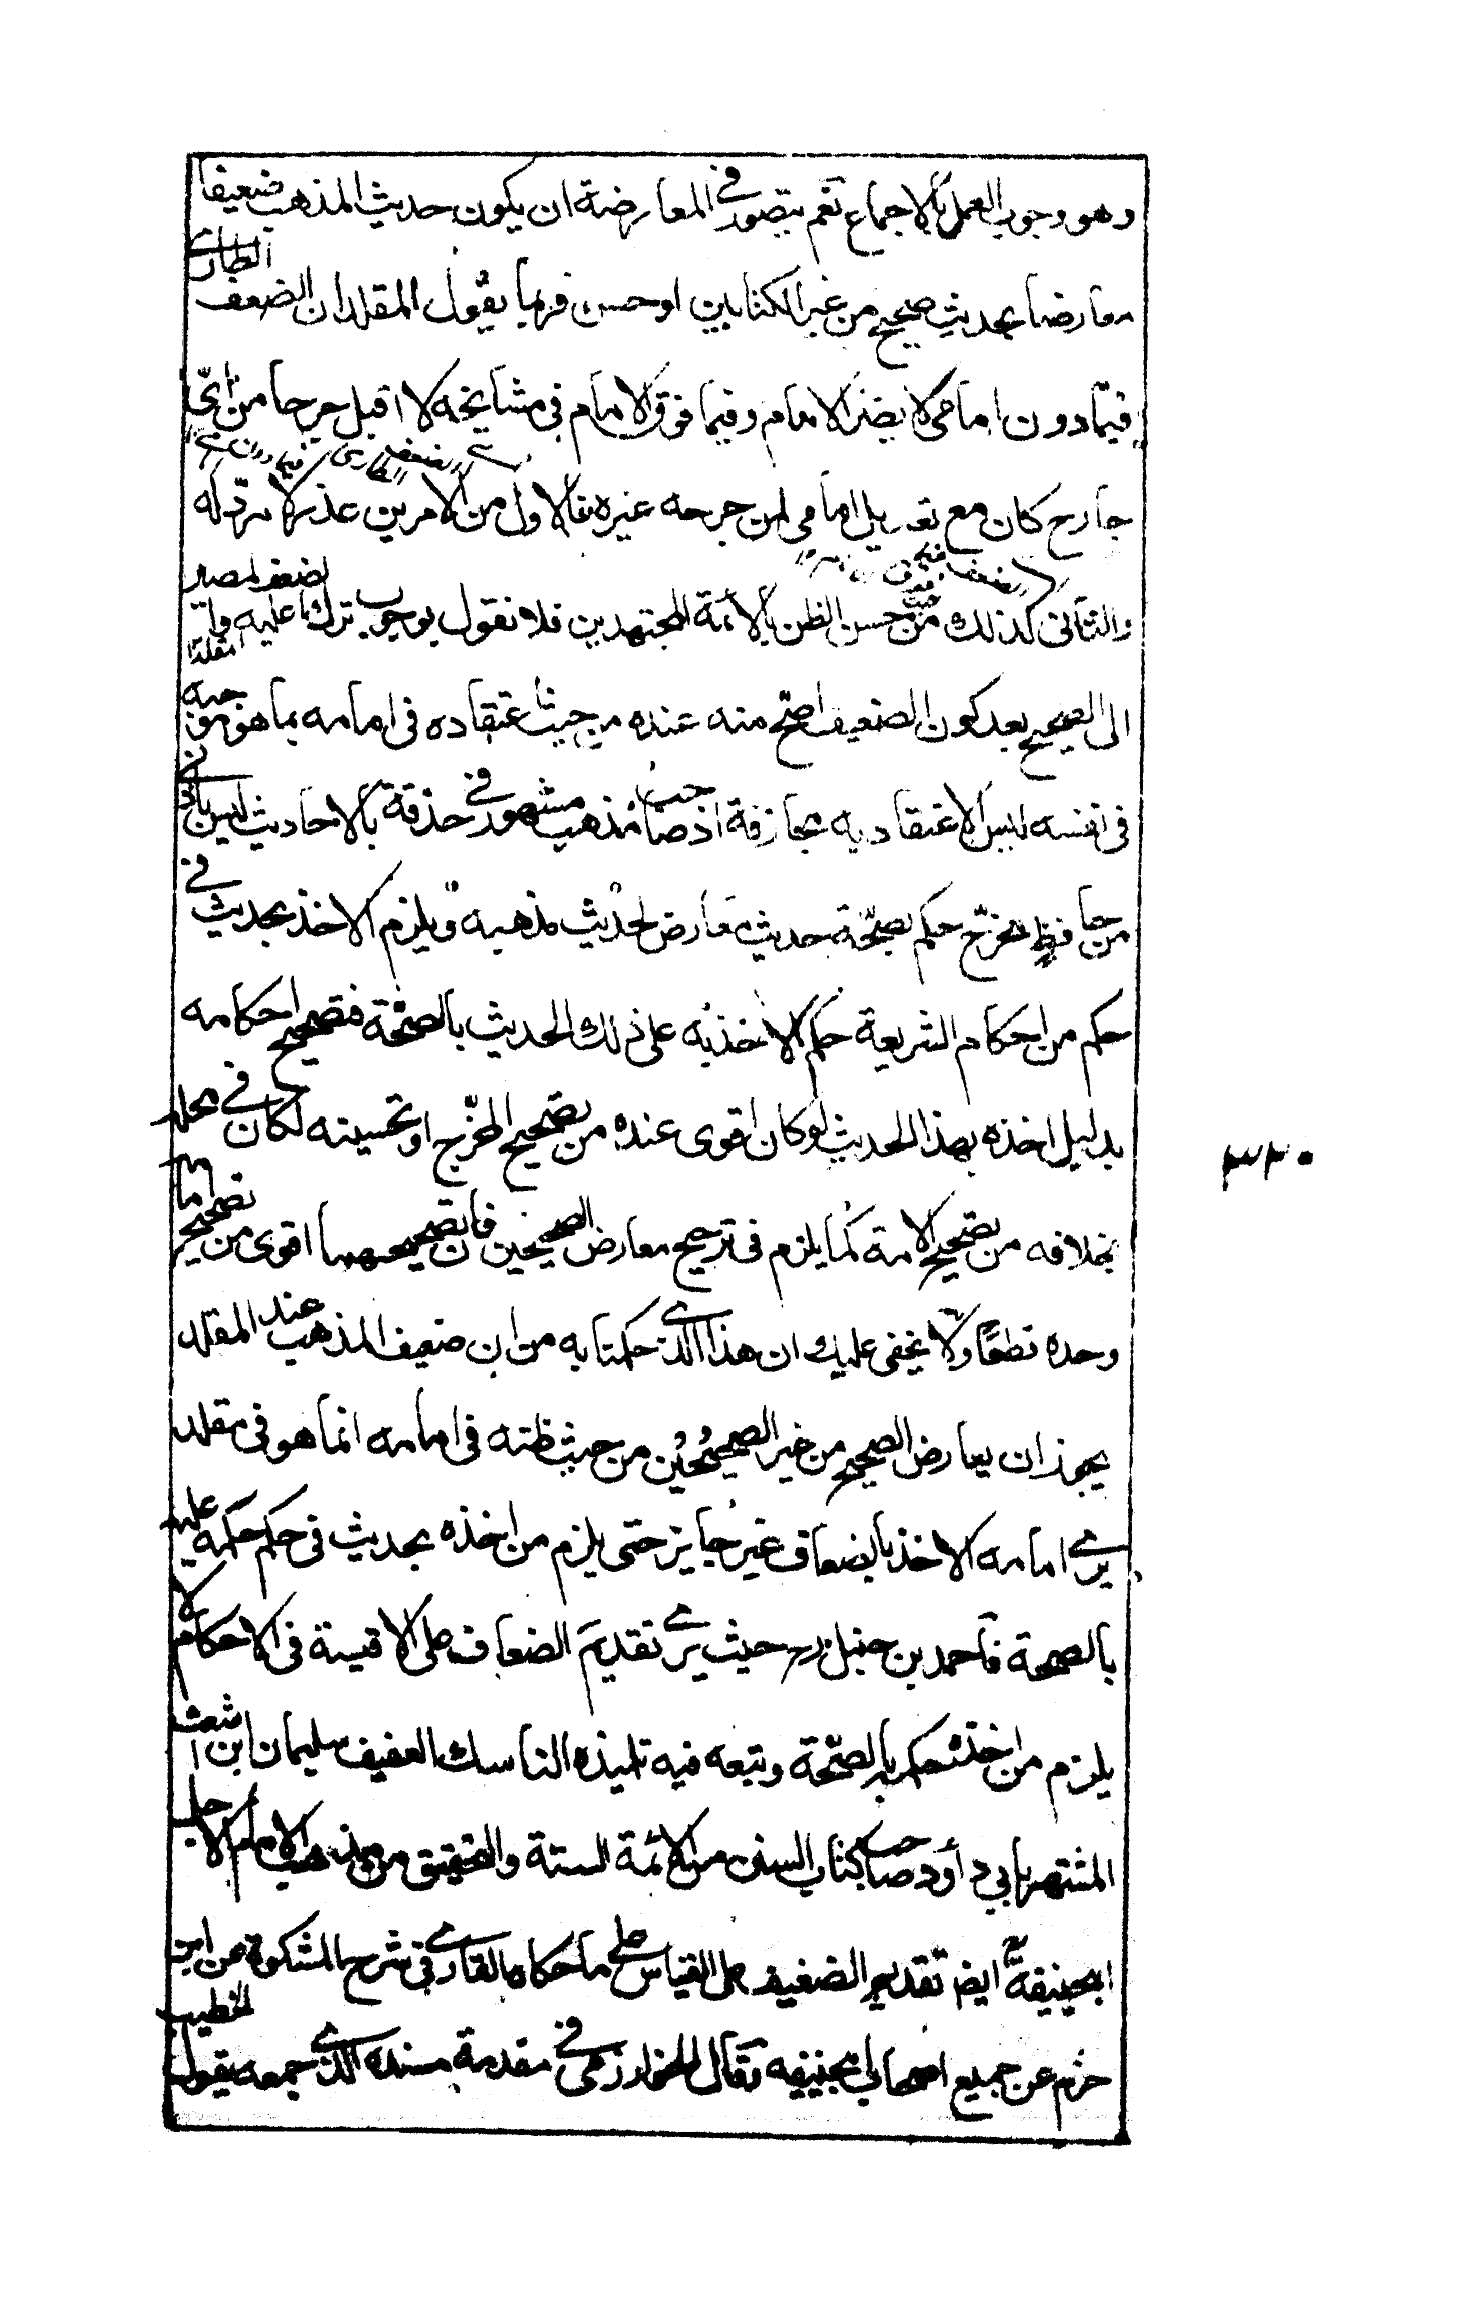 وهو وجوب العمل بالاجماع نعم يتصور في المعارضة ان يكون حديث المذهب ضعيفا
معارضا بحديث صحيح من غير الكتابين او حسن فربما يقول المقلد ان الضعف الطاري
فيما دون امامي لا يضر الامام وفيما فوق الامام في مشايخه لا اقبل جرحا من اي
جارح كان مع تعديل امامي لمن جرحه غيره فالاول من الامرين عذر لا مرد له
والثاني كذلك من حسن الظن بالأئمة المجتهدين فلا نقول بوجوب ترك ما عليه
الى الصحيح بعد كون الضعيف اصح منه عنده من حيث اعتقاده في امامه بما هو موجبه
في نفسه ليس الاعتقاد به مجازفة اذ صاحب مذهب مشهور في حذقه بالاحاديث ليس بأدنى
من حافظ مخرج حكم بصحة حديث معارض لحديث مذهبه ويلزم الاخذ بحديث في
حكم من احكام الشريعة حكم الاخذ به على ذلك الحديث بالصحة فتصحيح احكامه
بدليل اخذه بهذا الحديث لو كان اقوى عنده من تصحيح المخرج او تحسينه لكان في محله
بخلافه من تصحيح الامة كما يلزم في ترجيح معارض الصحيحين فان تصحيحهما اقوى من تصحيح امام
وحده قطعا ولا يخفى عليك ان هذا الذي حكمنا به من ان ضعيف المذهب عند المقلد
يجوز ان يعارض الصحيح من غير الصحيحين من حيث ظنه في امامه انما هو في مقلد
يرى امامه الاخذ بالضعاف غير جايز حتى يلزم من اخذه بحديث في حكم حكمه عليه
بالصحة فأحمد بن حنبل رح حيث يرى تقديم الضعاف على الاقيسة في الاحكام لا
يلزم من اخذه حكمه بالصحة وتبعه فيه تلميذه الناسك العفيف سليمان ابن اشعث
المشتهر بابي داود صاحب كتاب السنن من الائمة الستة والتحقيق من مذهب الامام الاجل
ابيحنيفة ايضا تقديم الضعيف على القياس على ما حكاه القاري في شرح المشكوة عن ابن
حزم عن جميع اصحاب ابيحنيفه وقال الخوارزمي في مقدمة مسنده الذي جمعه يقول الخطيب
٣٣٠